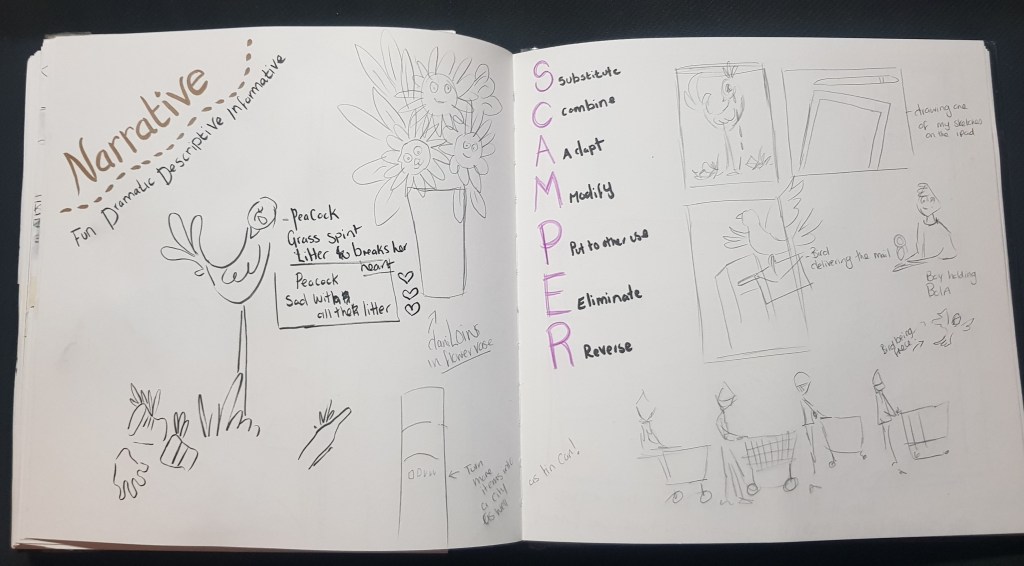 Narrative
Fun Dramatic Descriptive Informative
- Peacock
Grass Spirit
Litter breaks her
heart
Peacock
Sad with
all the litter
in flower vase
Turn
more
items into
a city
as well
as tin can!
S Substitute
C Combine
A Adapt
M Modify
P Put to other use
E Eliminate
R Reverse
drawing one
of my sketches
on the ipad
Bird
delivering the mail
Boy holding